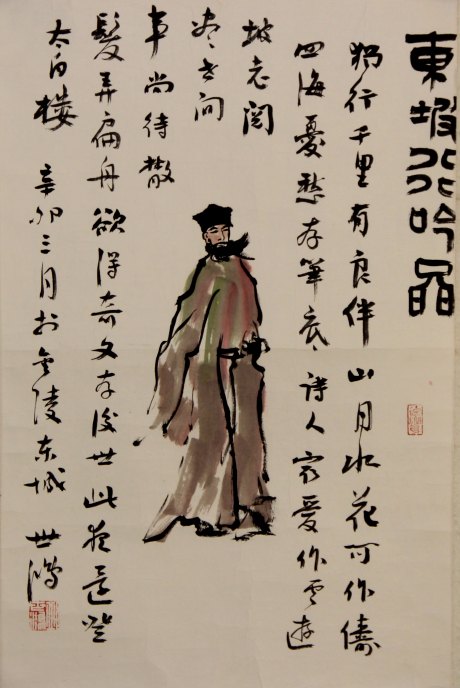 東坡行吟啚
独行千里有良伴山月水花可作儔
四海憂愁存筆底诗人最愛作雲遊
坡老閲
尽世间
事尚待散
髮弄扁舟欲得奇文存後世此夜還登
太白楼 辛卯三月於金陵东城 世鸿